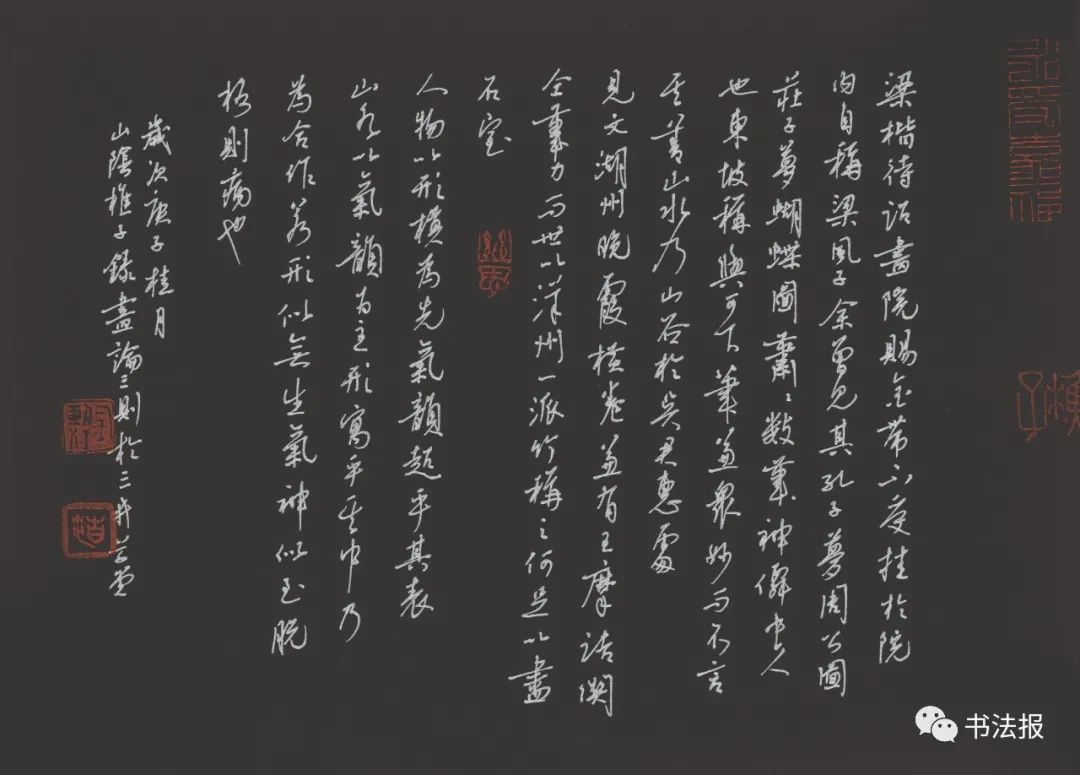 梁楷待詔畫院賜金帶不受挂於院
內自稱梁風子余曾見其孔子夢周公圖
莊子夢蝴蝶圖蕭蕭數筆神僊中人
也東坡稱與可下筆兼衆妙而不言
其善山水乃山谷於吳君惠處
見文湖州晚靄橫卷兼有王摩詰關
仝筆力而世以洋州一派竹稱之何足以盡
石室
人物以形模為先氣韻超乎其表
山水以氣韻為主形寓乎其中乃
為合作若形似無生氣神似至脫
格則病也
歲次庚子桂月
山陰樵子錄畫論三則於三井草堂
书法报